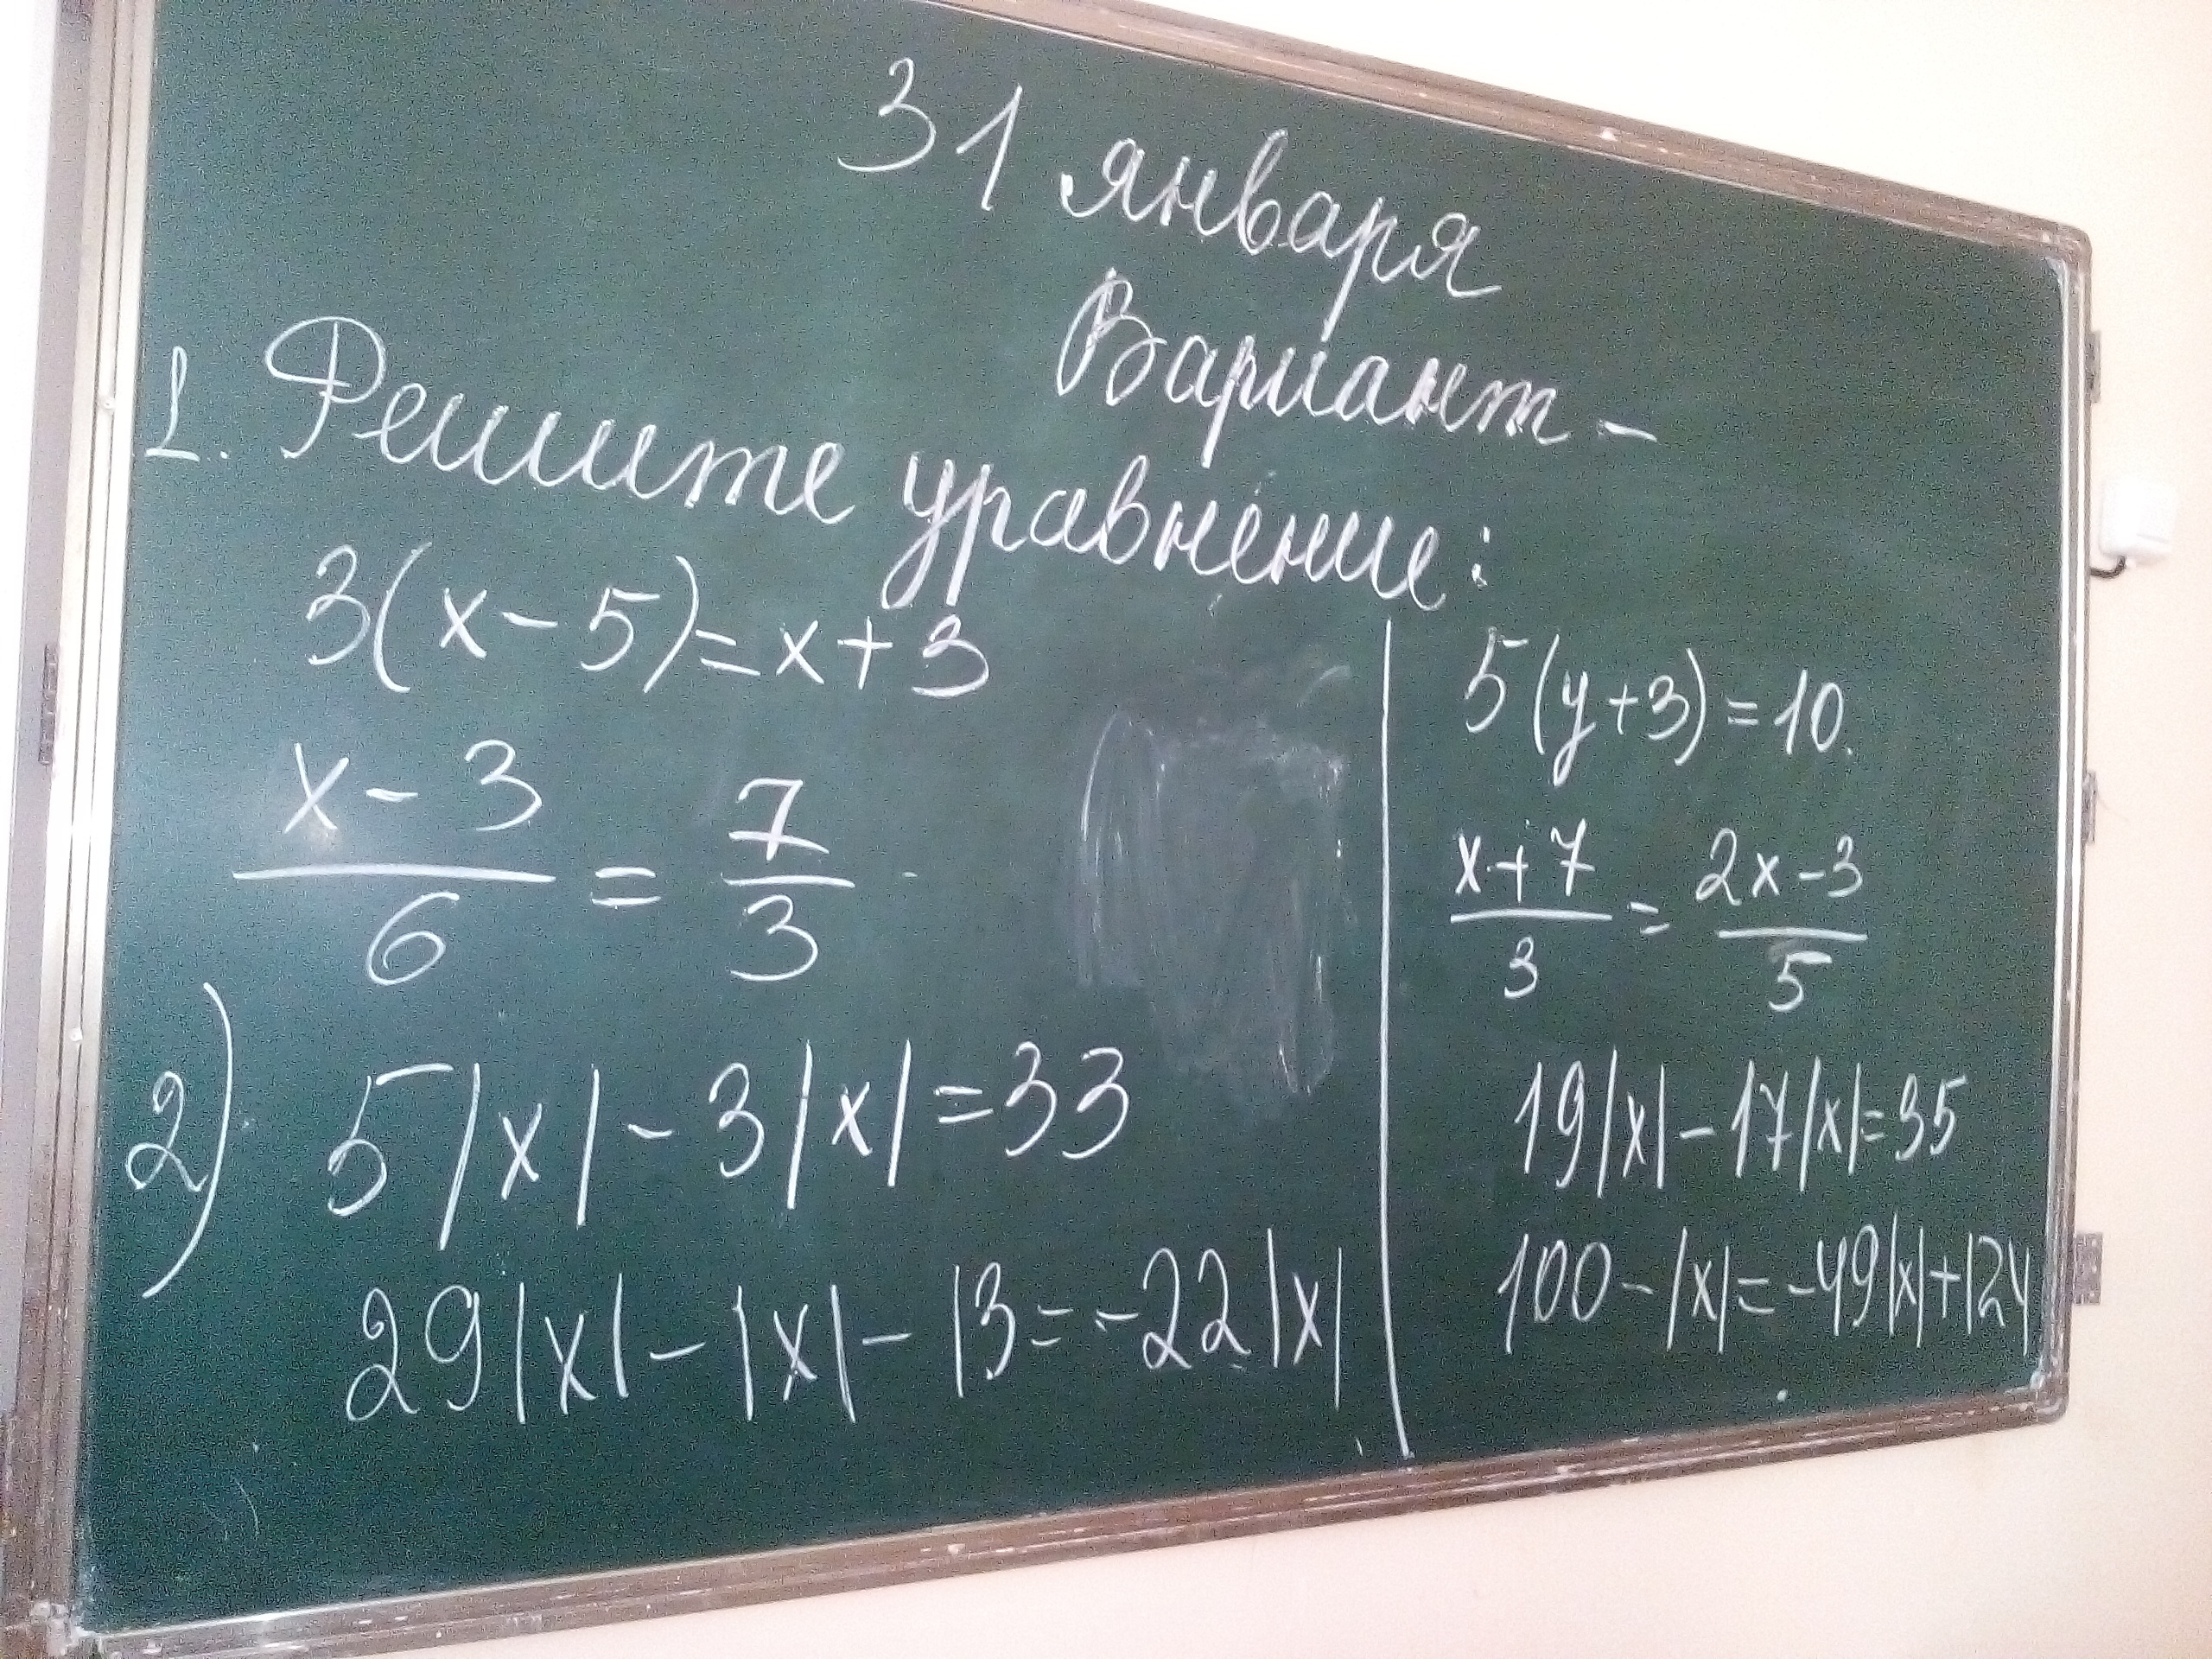 31 января
Вариант -
1. Решите уравнение:
3(x - 5) = x + 3
x - 3 / 6 = 7 / 3
2) 5|x| - 3|x| = 33
29|x| - |x| - 13 = -22|x|
5(y + 3) = 10.
x + 7 / 3 = 2x - 3 / 5
19|x| - 17|x| = 35
100 - |x| = -49|x| + 124